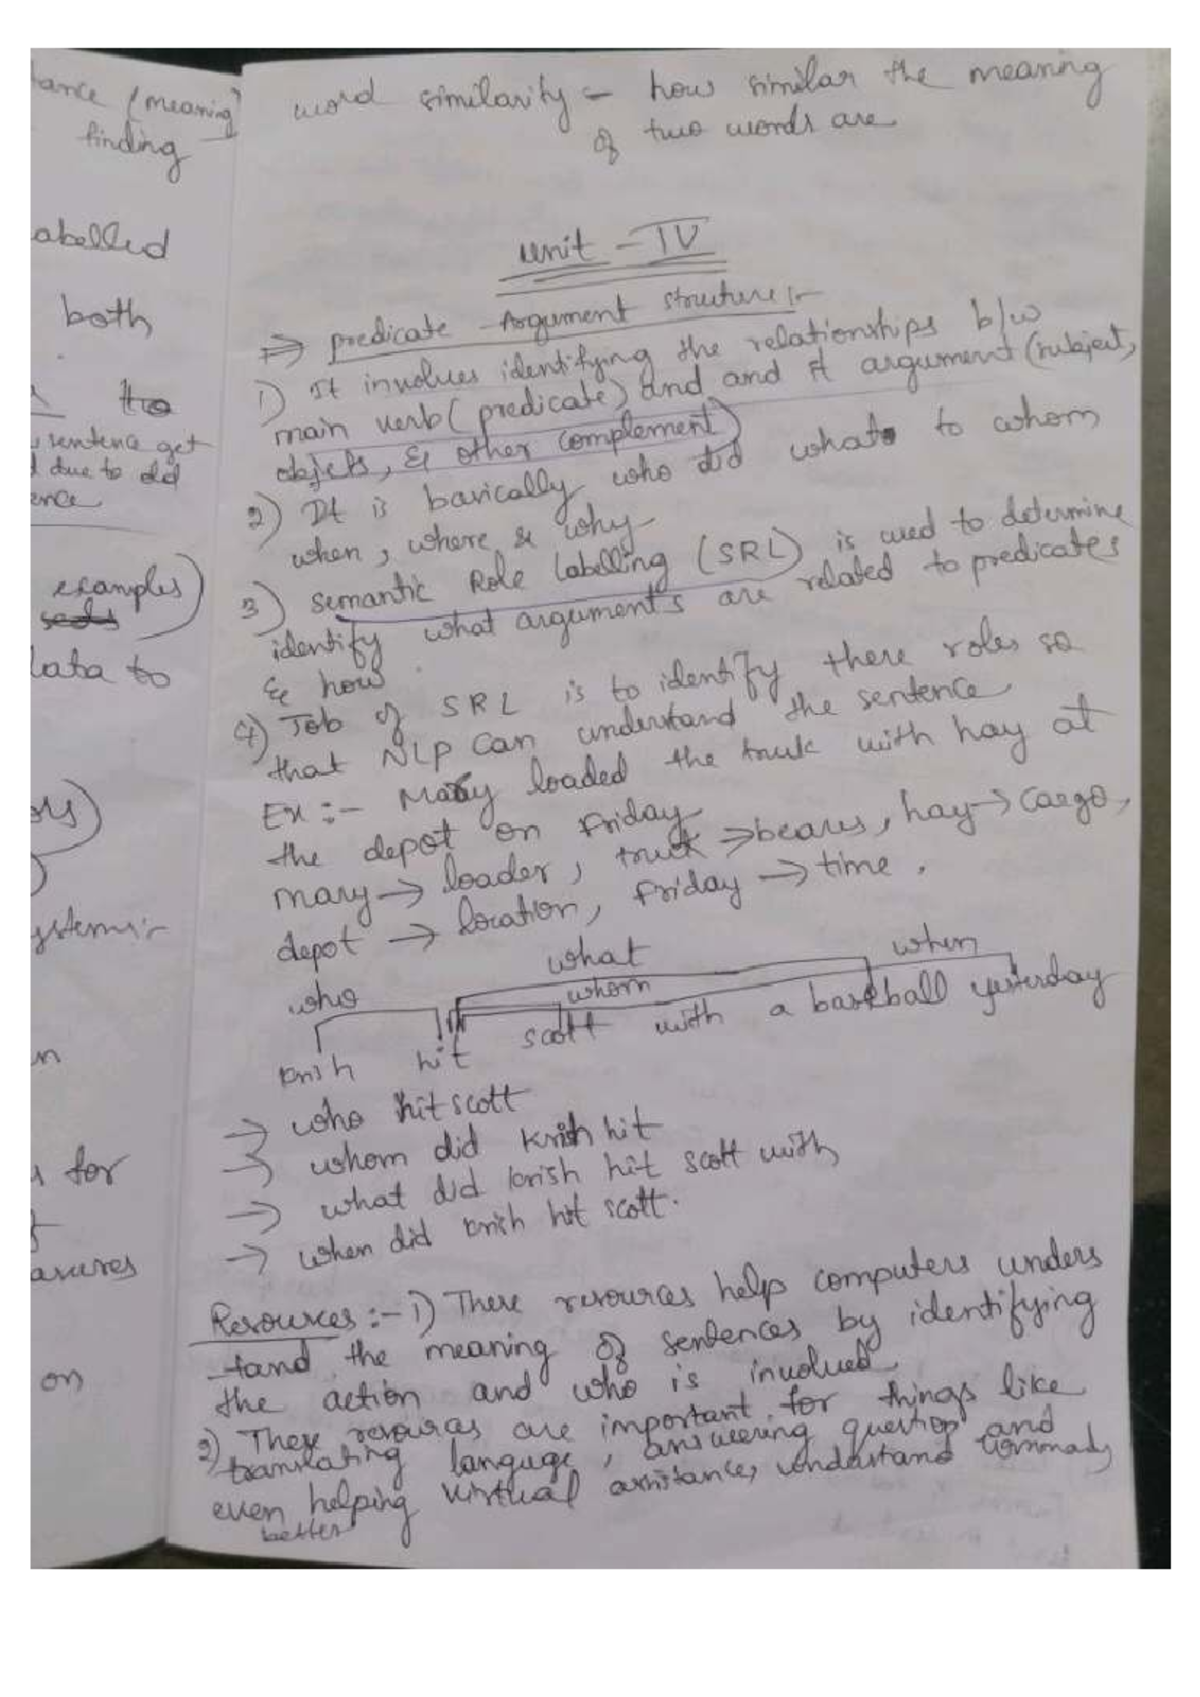 word similarity - how similar the meaning
of two words are
unit - IV
=> predicate - Argument structure :-
1) It involves identifying the relationships b/w
main verb (predicate) and and it argument (subject,
objects, & other complement)
2) It is basically who did what to whom
when, where & why
3) semantic Role labelling (SRL) is used to determine
identify what arguments are related to predicates
& how
4) Job of SRL is to identify there roles so
that NLP can understand the sentence
Ex :- Mary loaded the truck with hay at
the depot on Friday
mary -> loader, truck -> beares, hay -> cargo,
depot -> location, Friday -> time.
what when
who whom
krish hit scott with a baseball yesterday
-> who hit scott
-> whom did krish hit
-> what did krish hit scott with
-> when did krish hit scott.
Resources :- 1) There resources help computers unders
tand the meaning of sentences by identifying
the action and who is involved
2) There resources are important for things like
translating language, answering question and
even helping virtual assistance, understand
better
tance (meaning)
finding
abelled
both
the
sentence get
due to old
ence
examples)
seeds
data to
on
for
asures
on